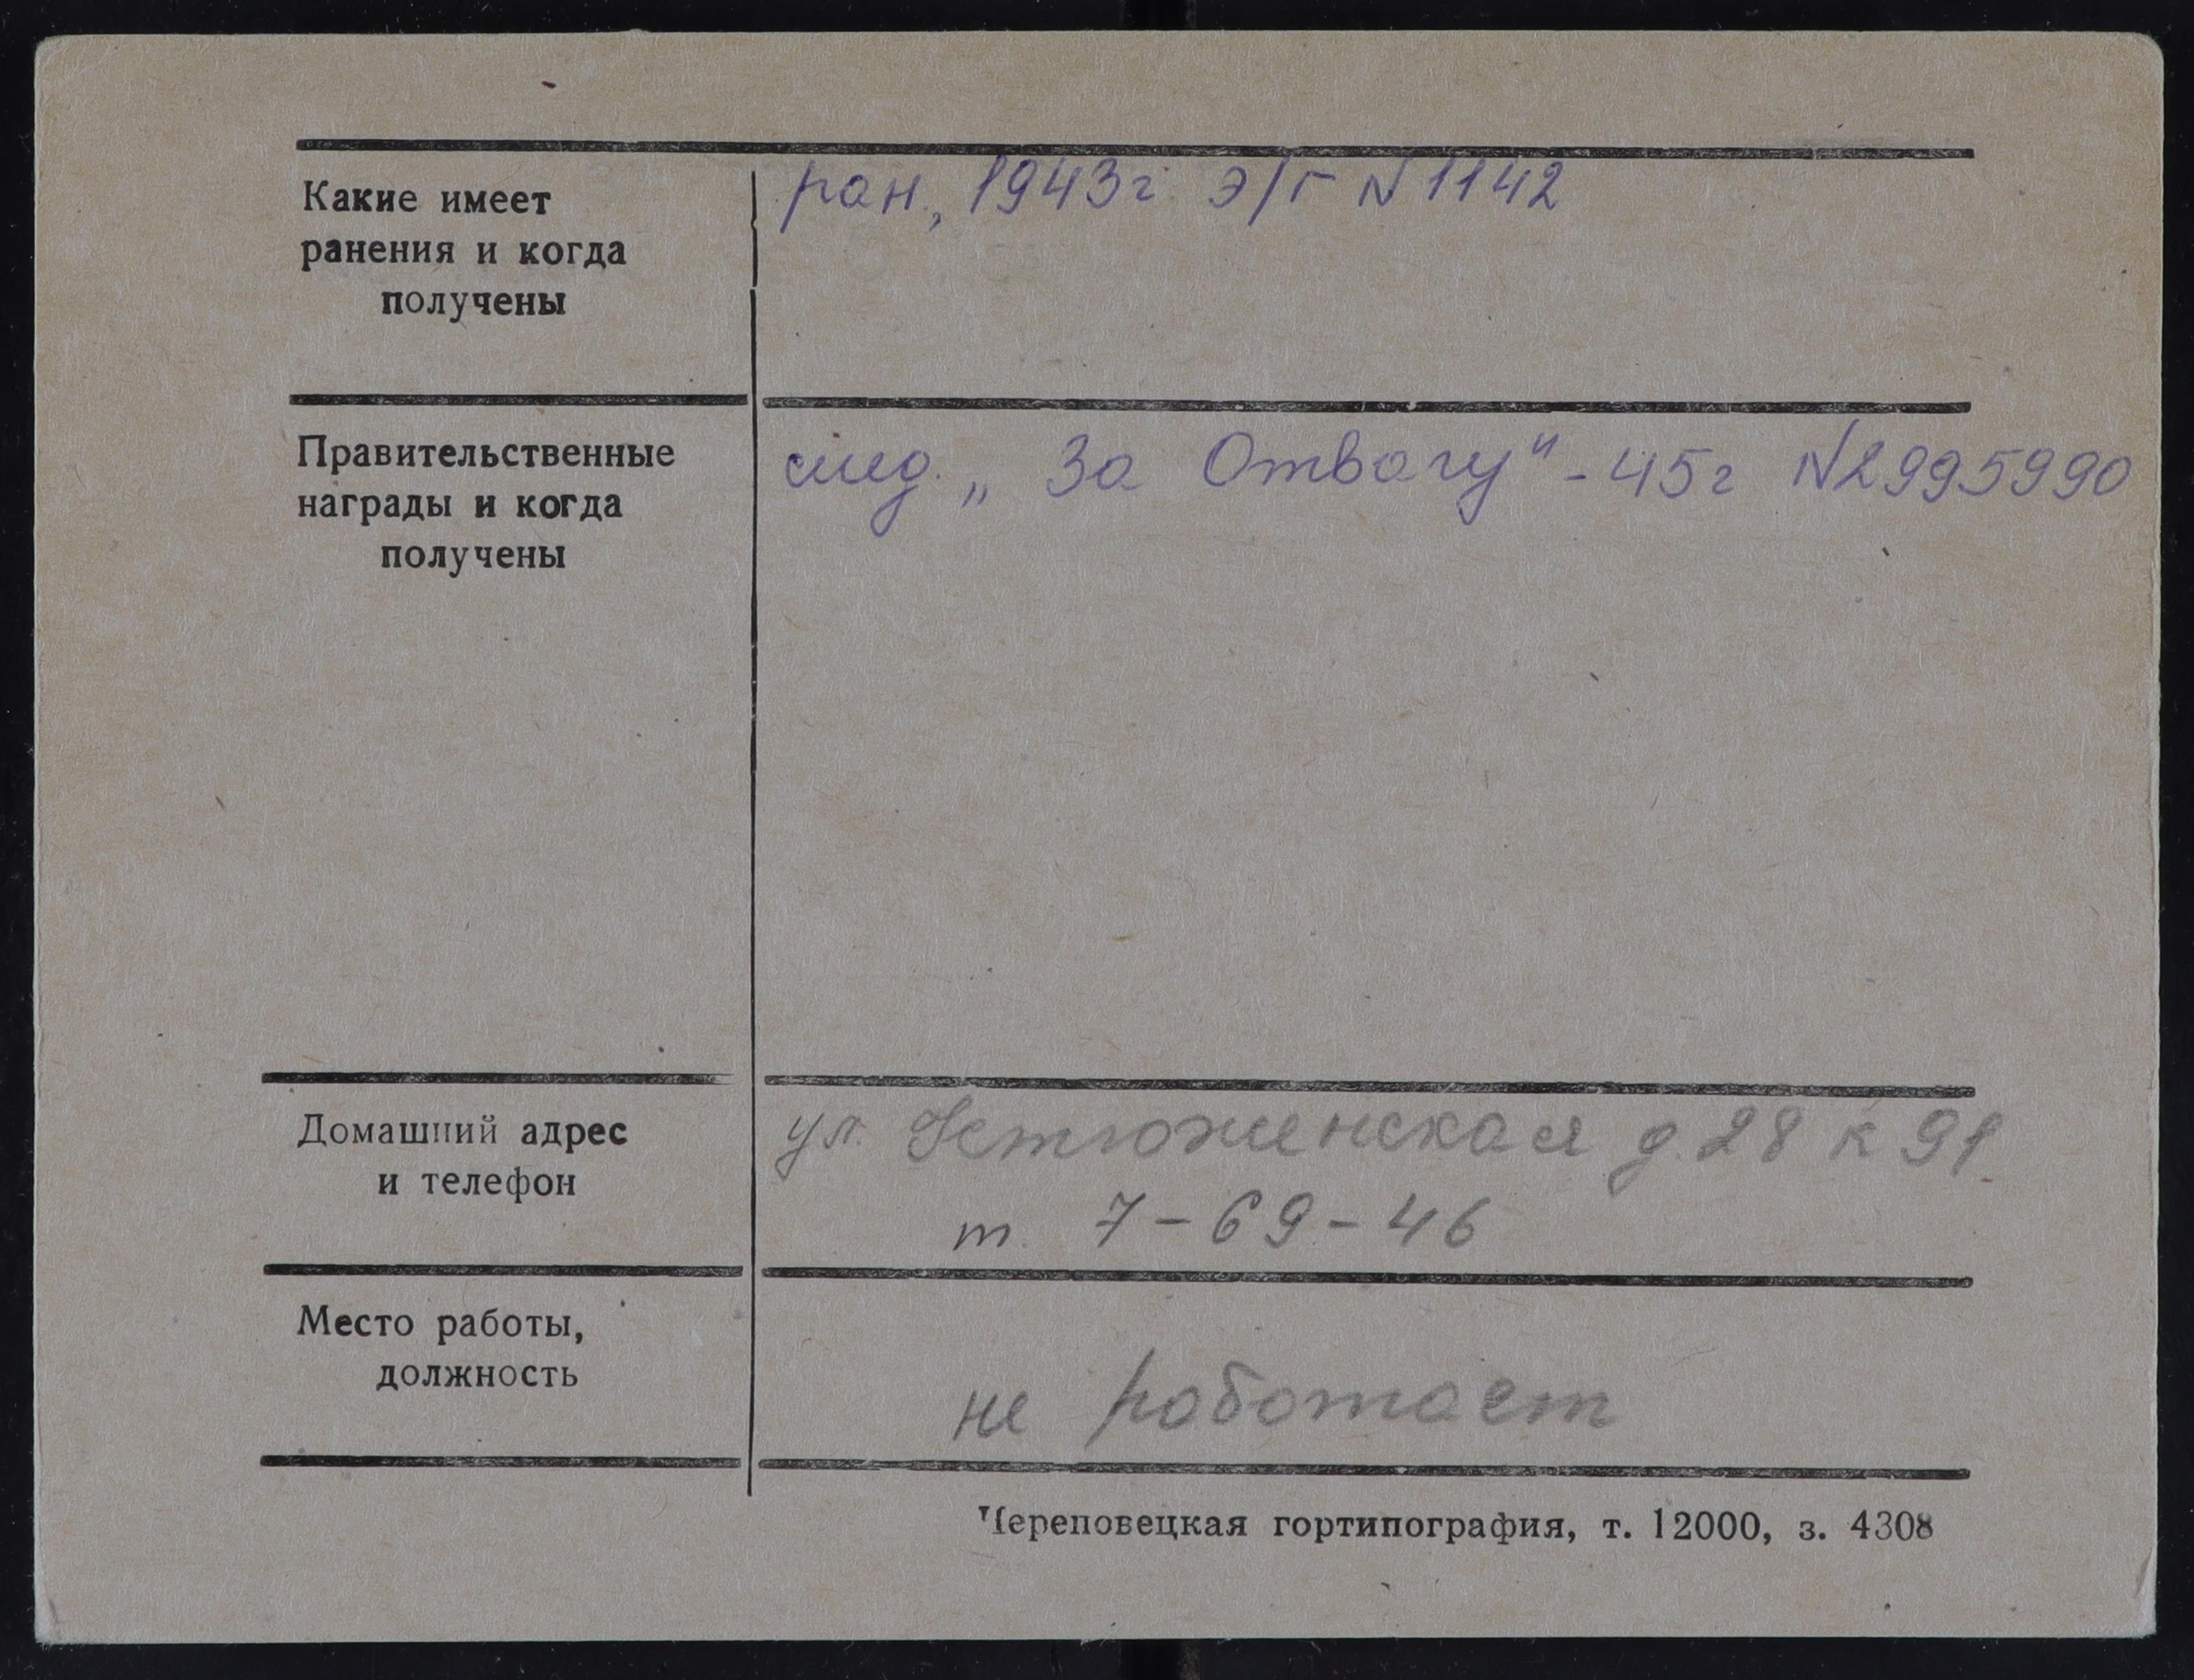 Какие имеет
ранения и когда
получены
ран., 1943г. э/г N 1142
Правительственные
награды и когда
получены
мед. „За Отвагу" - 45г N2995990
Домашний адрес
и телефон
ул. Устюженская д. 28 к 91.
т. 7-69-46
Место работы,
должность
не работает
Череповецкая гортипография, т. 12000, з. 4308